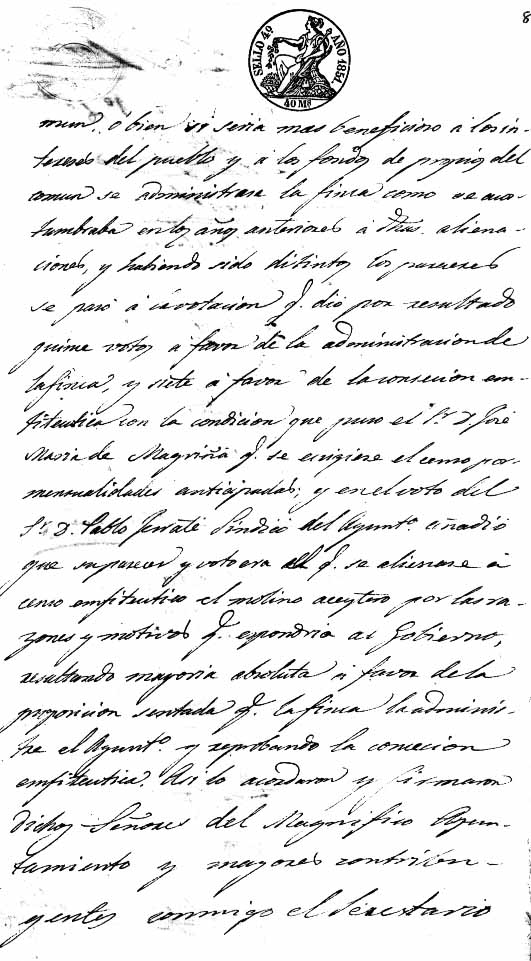 8
SELLO 4º AÑO 1851.
40 Ms
mun, o bien si seria mas beneficioso á los in-
tereses del pueblo y á los fondos de propios del
comun se administrase la finca como se acos-
tumbraba en los años anteriores á dhas. aliena-
ciones, y habiendo sido distintos los pareceres
se pasó á la votacion q. dió por resultado
quince votos a favor de la administracion de
la finca, y siete á favor de la consecion en-
fiteutica con la condicion que puso el Sr. D. José
Maria de Magriñá q. se exigiese el censo por
mensualidades anticipadas; y en el voto del
Sr. D. Pablo Sindico del Ayuntº. añadió
que su parecer y voto era q. se alienase á
censo emfiteutico el molino aceytero por las ra-
zones y motivos q. espondria al Gobierno,
resultando mayoria absoluta á favor de la
proposicion sentada q. la finca la adminis-
tre el Ayuntº. y reprobando la consecion
emfiteutica. Asi lo acordaron y firmaron
dichos Señores del Magnifico Ayun-
tamiento y mayores contribu-
yentes conmigo el Secretario